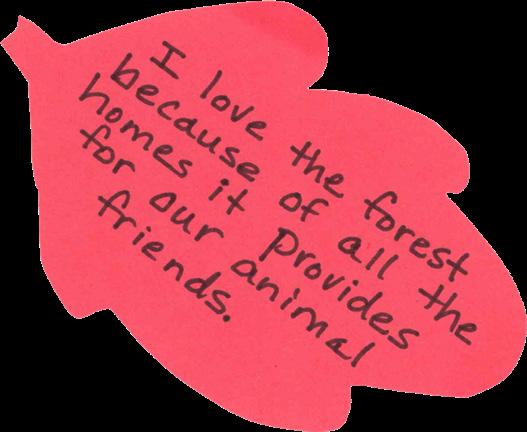 I love the forest
because of all the
homes it provides
for our animal
friends.